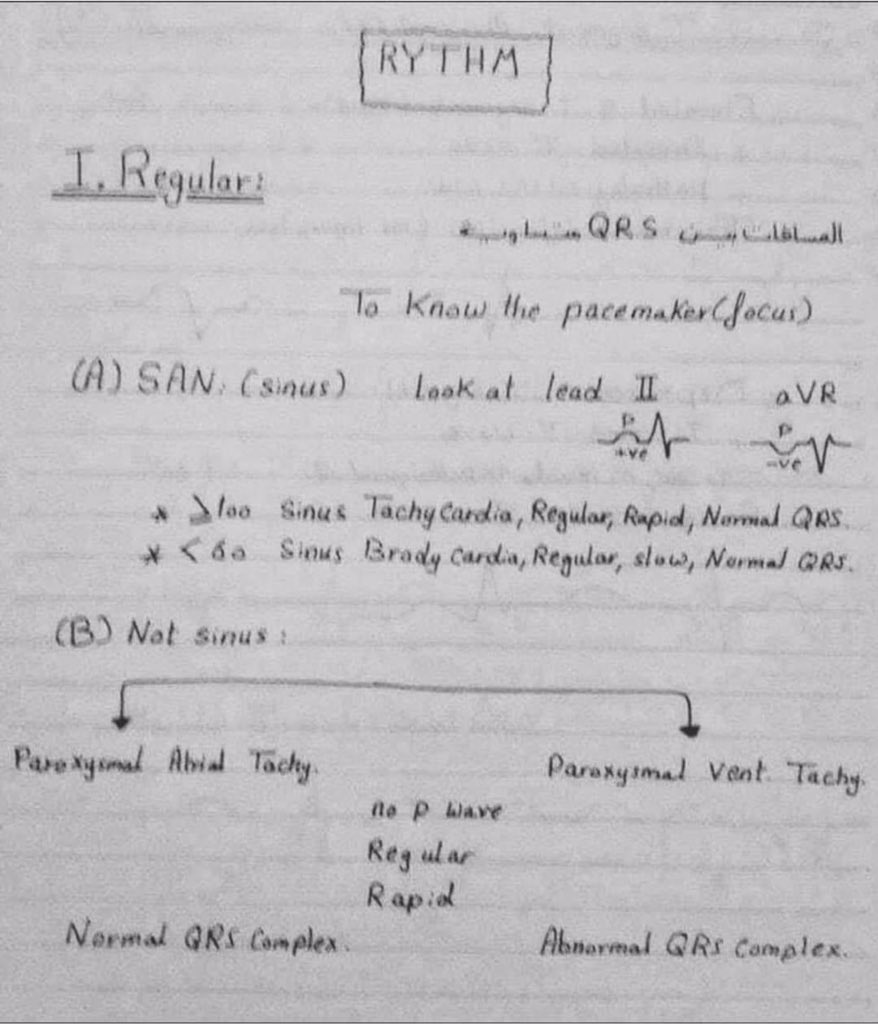 RYTHM
I. Regular:
المسافات بين QRS متساوية
To Know the pacemaker (focus)
(A) SAN: (sinus) Look at lead II aVR
P P
+ve -ve
* ≥100 Sinus Tachycardia, Regular, Rapid, Normal QRS.
* < 60 Sinus Brady cardia, Regular, slow, Normal QRS.
(B) Not sinus:
Paroxysmal Atrial Tachy. Paroxysmal Vent. Tachy.
no P wave
Regular
Rapid
Normal QRS Complex. Abnormal QRS Complex.